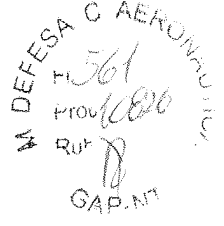 M DEFESA C AERONAUTICA
Fl 561
Proc 10826
Rub
GAP-NT